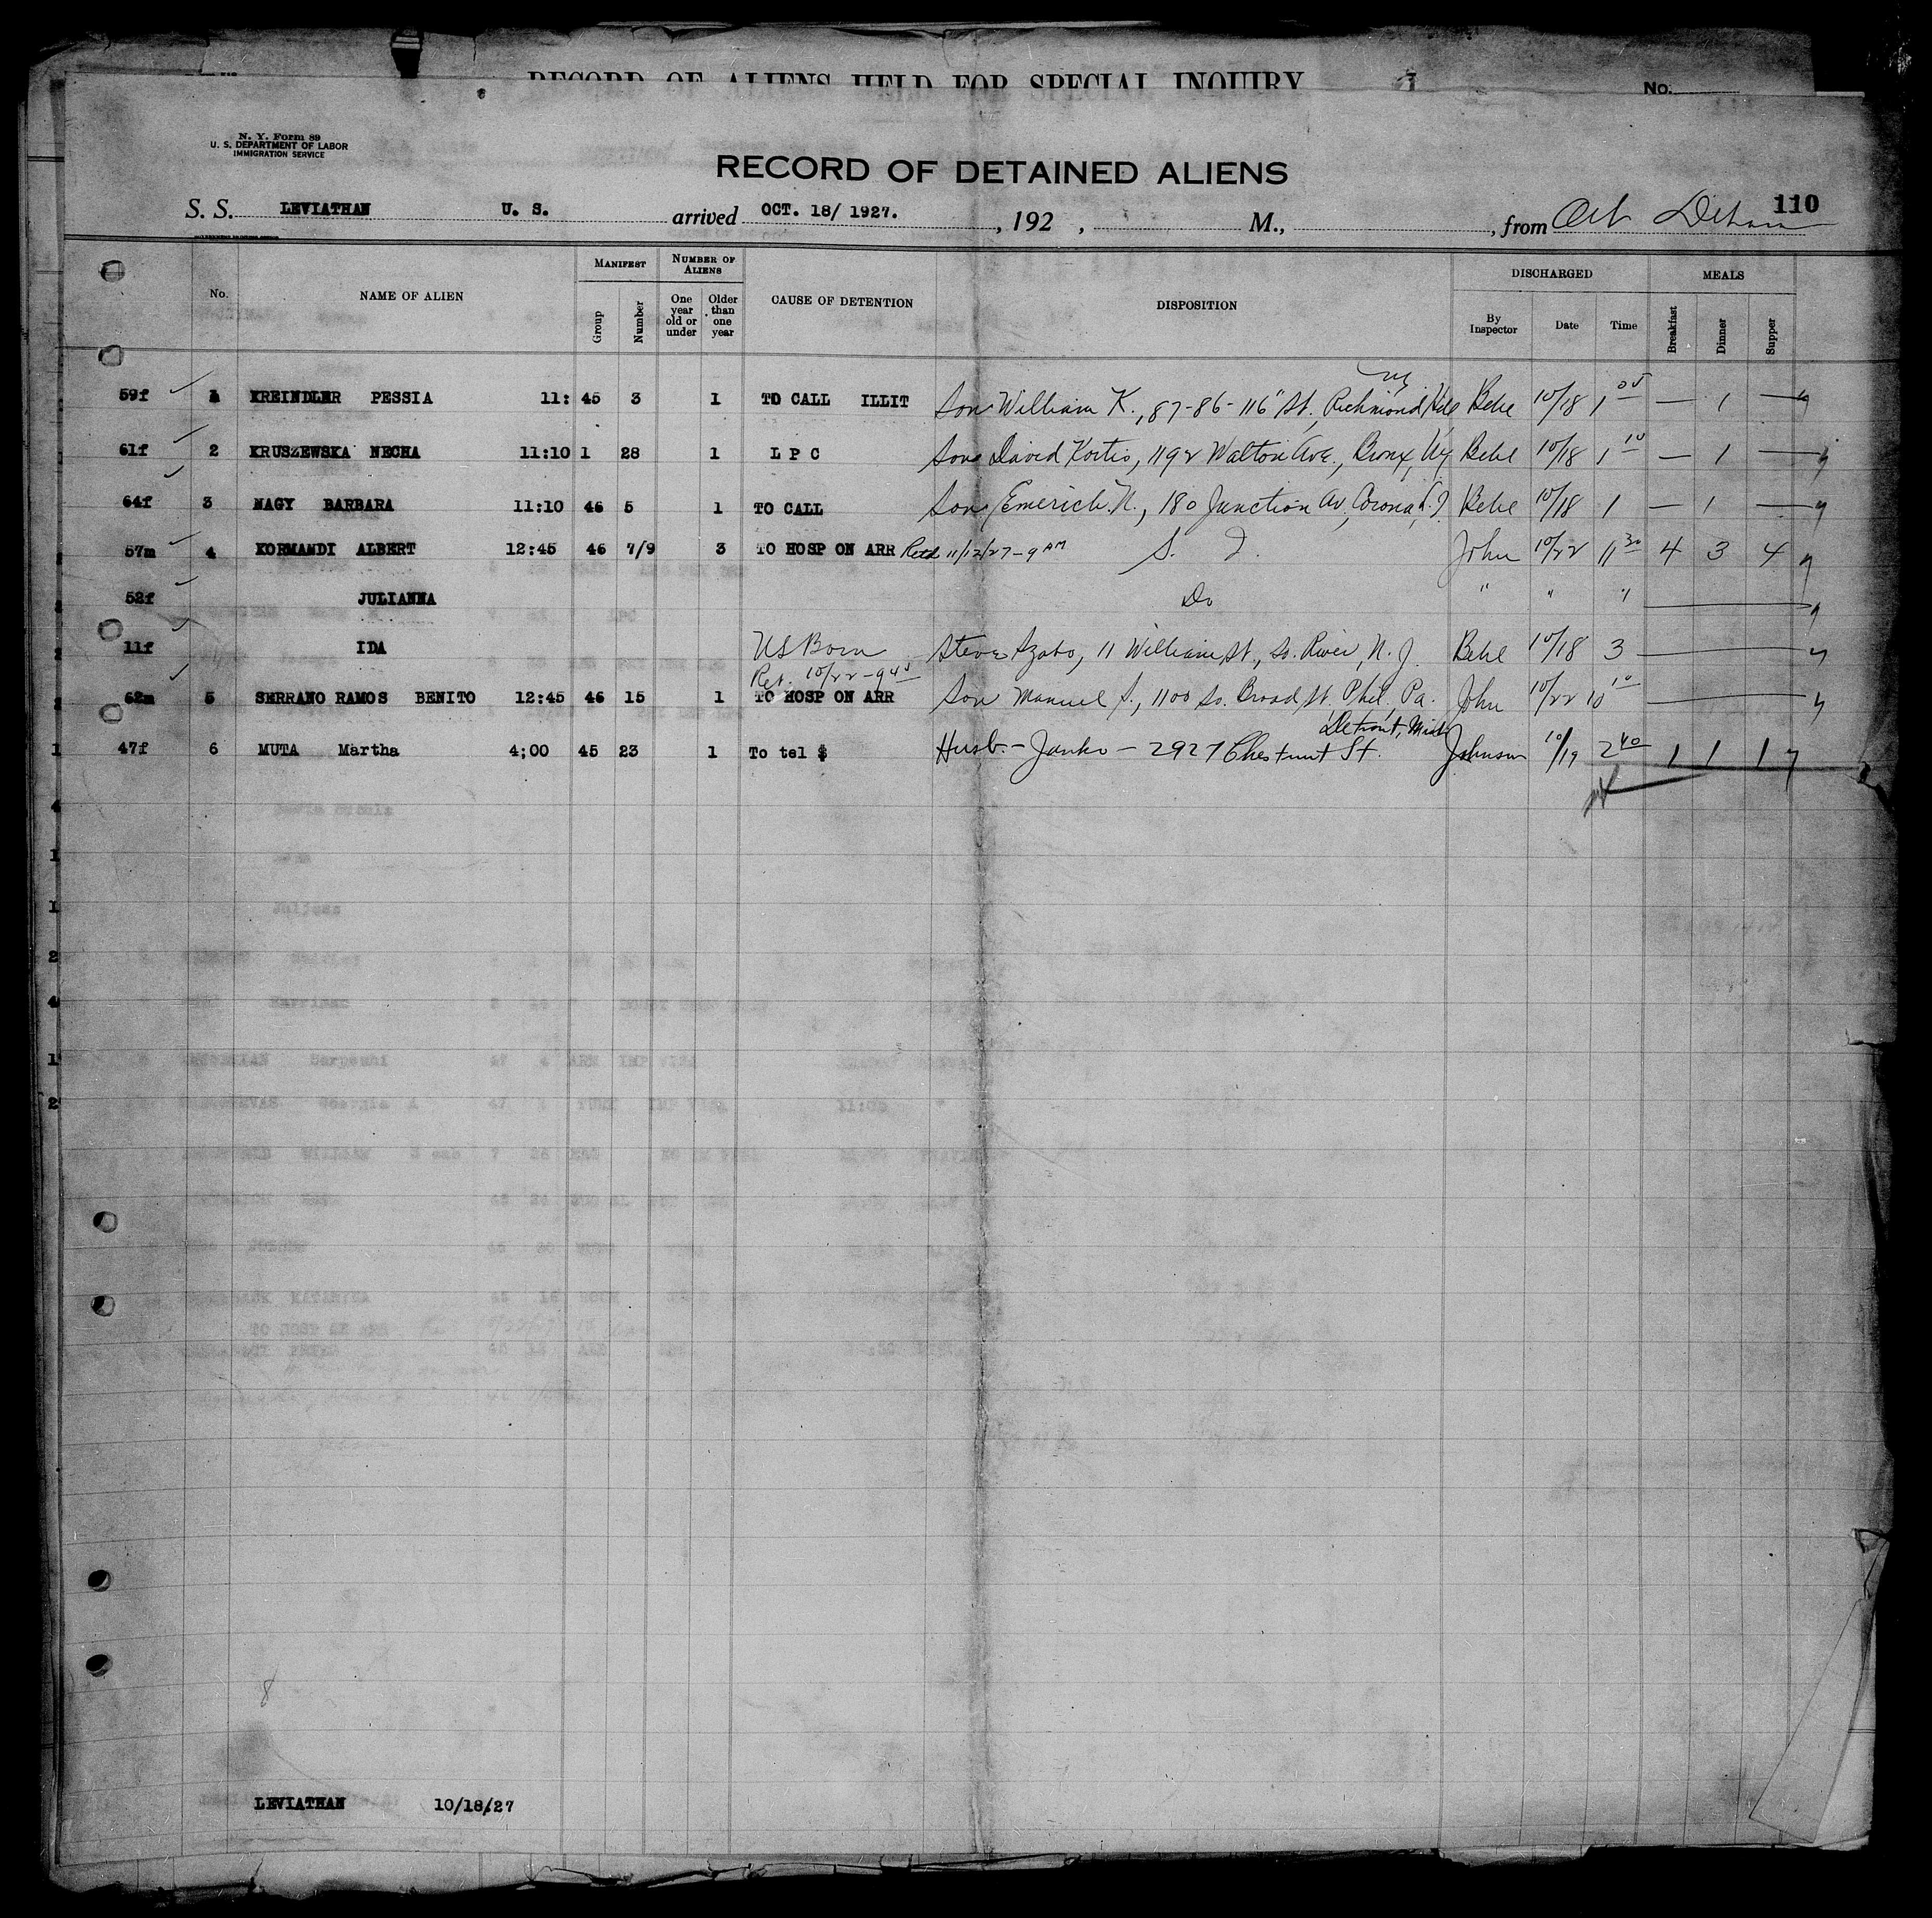 RECORD OF ALIENS HELD FOR SPECIAL INQUIRY
No.
N. Y. Form 89
U. S. DEPARTMENT OF LABOR
IMMIGRATION SERVICE
RECORD OF DETAINED ALIENS
110
S. S. LEVIATHAN U. S. arrived OCT. 18/ 1927. , 192 , M., , from
No. NAME OF ALIEN MANIFEST Group Number NUMBER OF ALIENS One year old or under Older than one year CAUSE OF DETENTION DISPOSITION DISCHARGED By Inspector Date Time MEALS Breakfast Dinner Supper
59f 1 KREINDLER PESSIA 11: 45 3 1 TO CALL ILLIT Son William K., 87-86-116" St, Richmond Hill NY Bebe 10/18 1 05 — 1 —
61f 2 KRUSZEWSKA NECHA 11:10 1 28 1 L P C Son David Kortis, 1192 Walton Ave., Bronx, NY Bebe 10/18 1 10 — 1 —
64f 3 NAGY BARBARA 11:10 46 5 1 TO CALL Son Emerich N., 180 Junction Av, Corona, L.I. Bebe 10/18 1 — 1 —
57m 4 KORMANDI ALBERT 12:45 46 7/9 3 TO HOSP ON ARR Retd 11/12/27-9 AM S. I. John 10/22 11 30 4 3 4
52f JULIANNA Do " " "
11f IDA US Born Steve Szabo, 11 William St., So. River, N. J. Bebe 10/18 3
Ret. 10/22-9 45
62m 5 SERRANO RAMOS BENITO 12:45 46 15 1 TO HOSP ON ARR Son Manuel S., 1100 So. Broad St, Phil, Pa. John 10/22 10 10
47f 6 MUTA Martha 4;00 45 23 1 To tel $ Husb.- Janko - 2927 Chestnut St. Detroit, Mich Johnson 10/19 2 40 1 1 1
8
LEVIATHAN 10/18/27